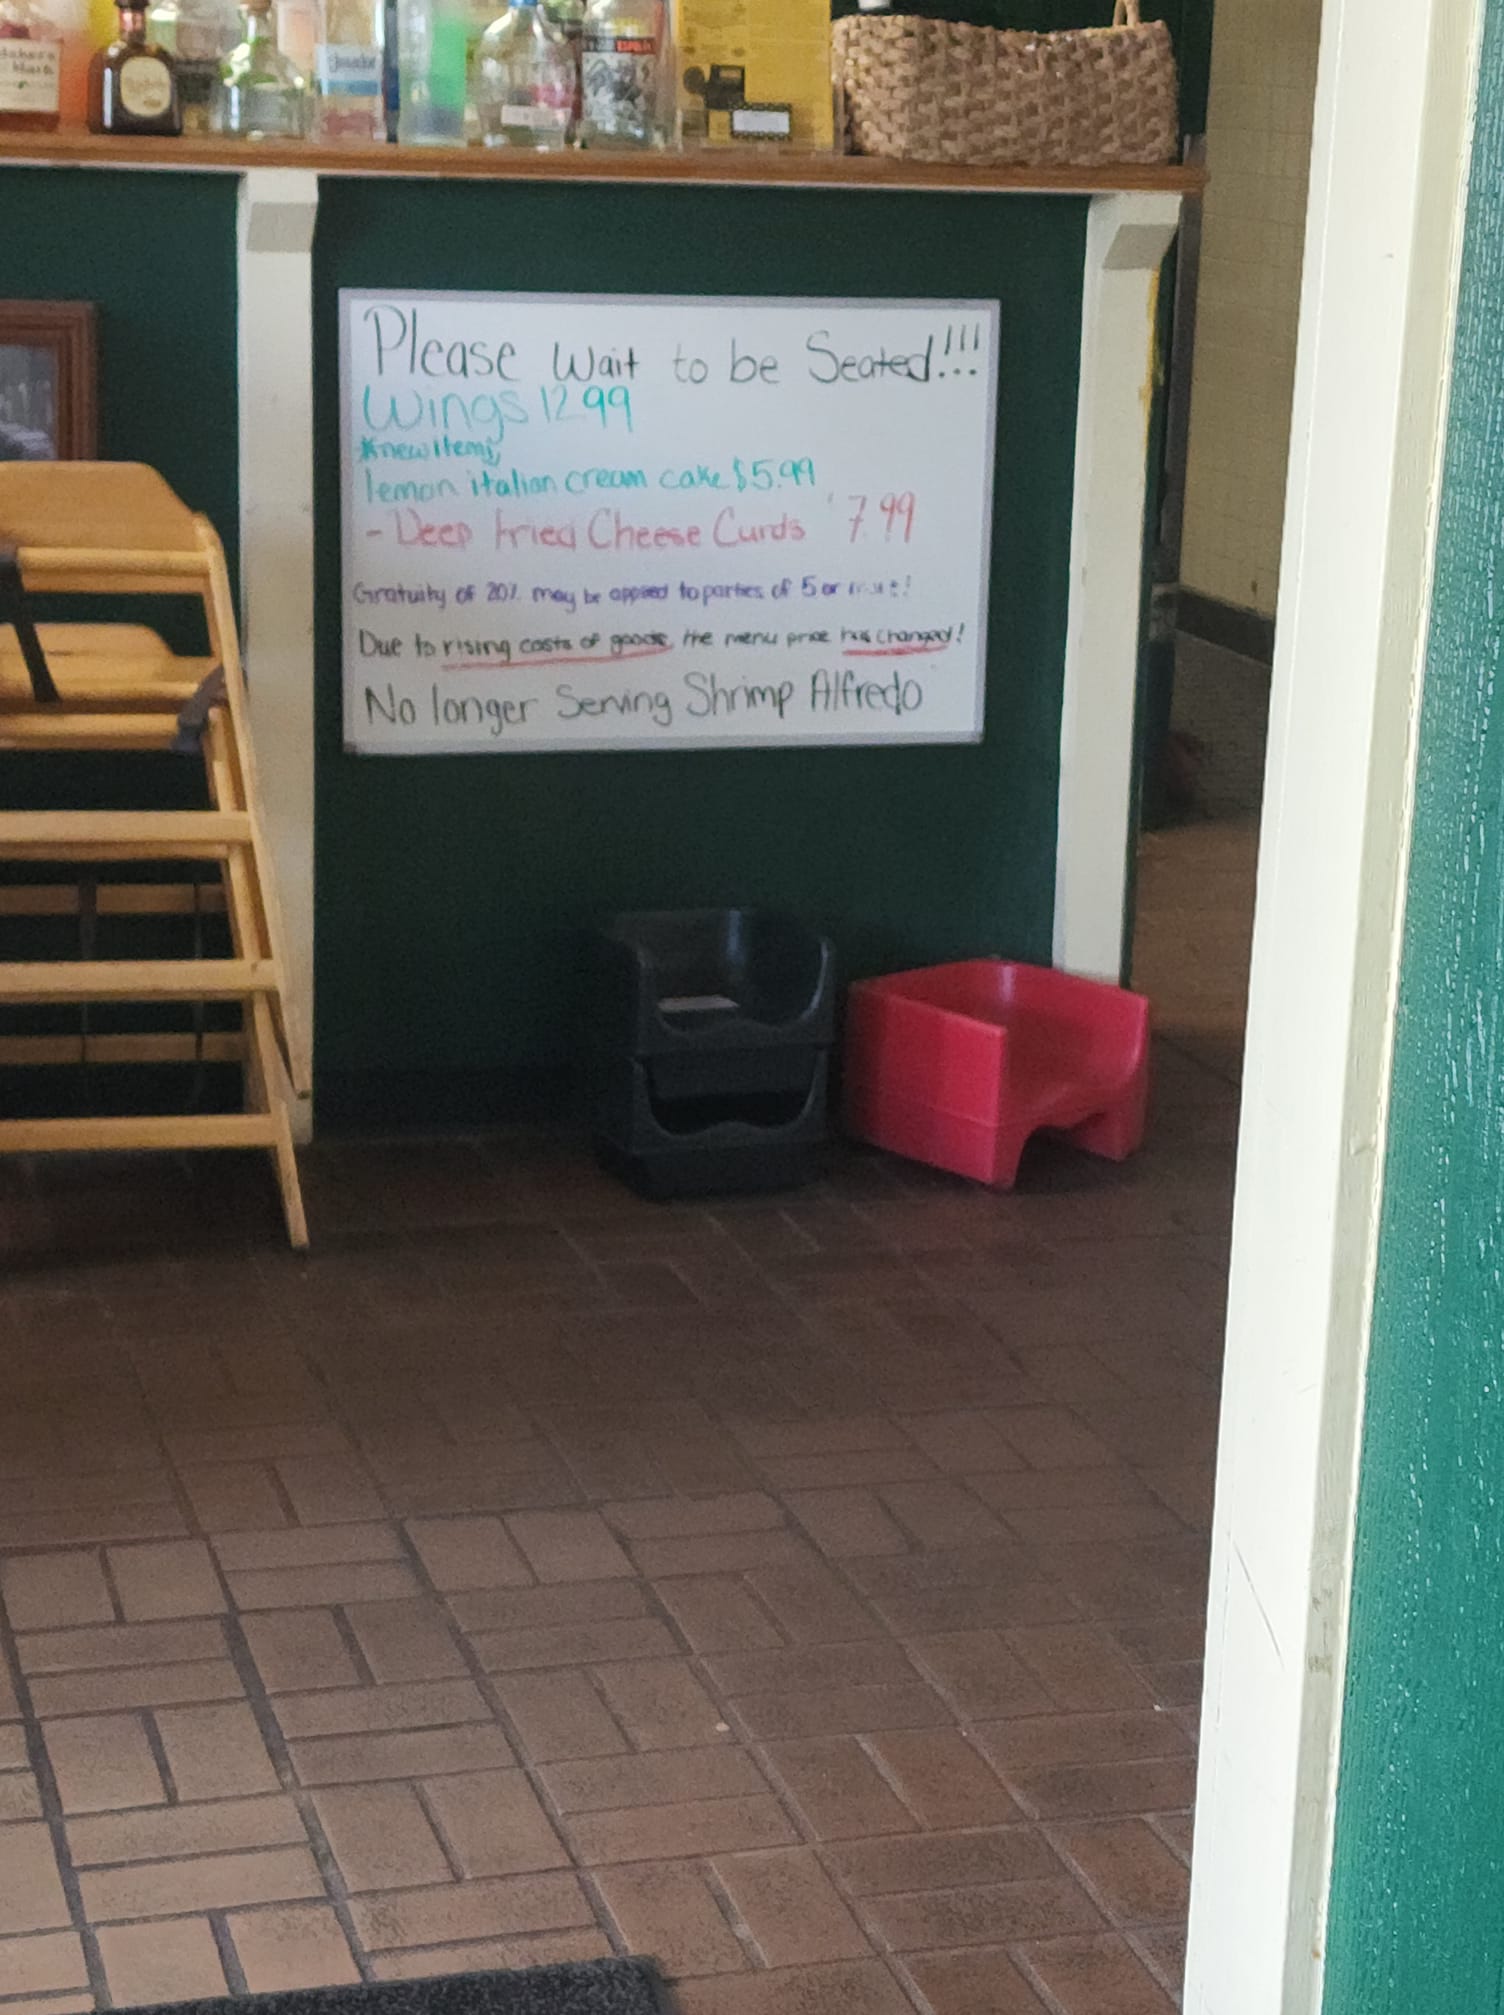 Please Wait to be Seated!!!
Wings 12.99
*new items
lemon italian cream cake $5.99
- Deep Fried Cheese Curds 7.99
Gratuity of 20% may be applied to parties of 5 or more!
Due to rising costs of goods, the menu price has changed!
No longer Serving Shrimp Alfredo